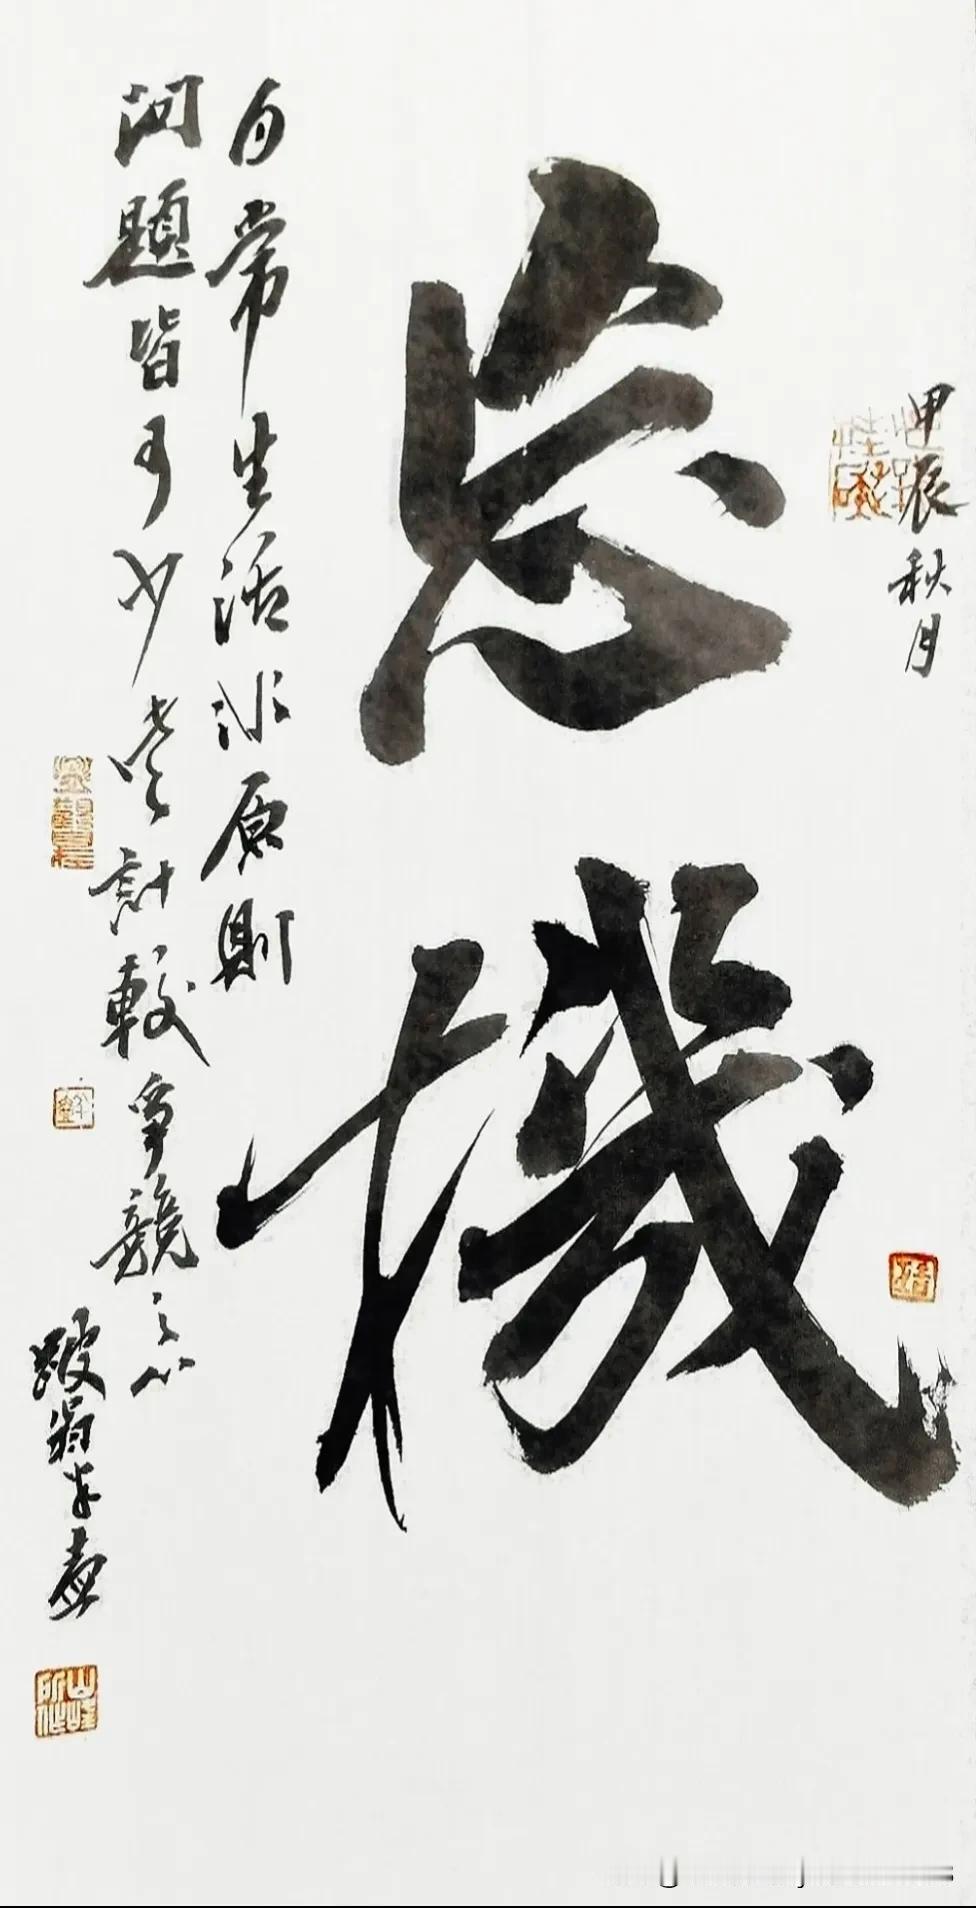 甲辰秋月
忘機
日常生活非原則
問題皆可少些計較爭競之心
跛翁